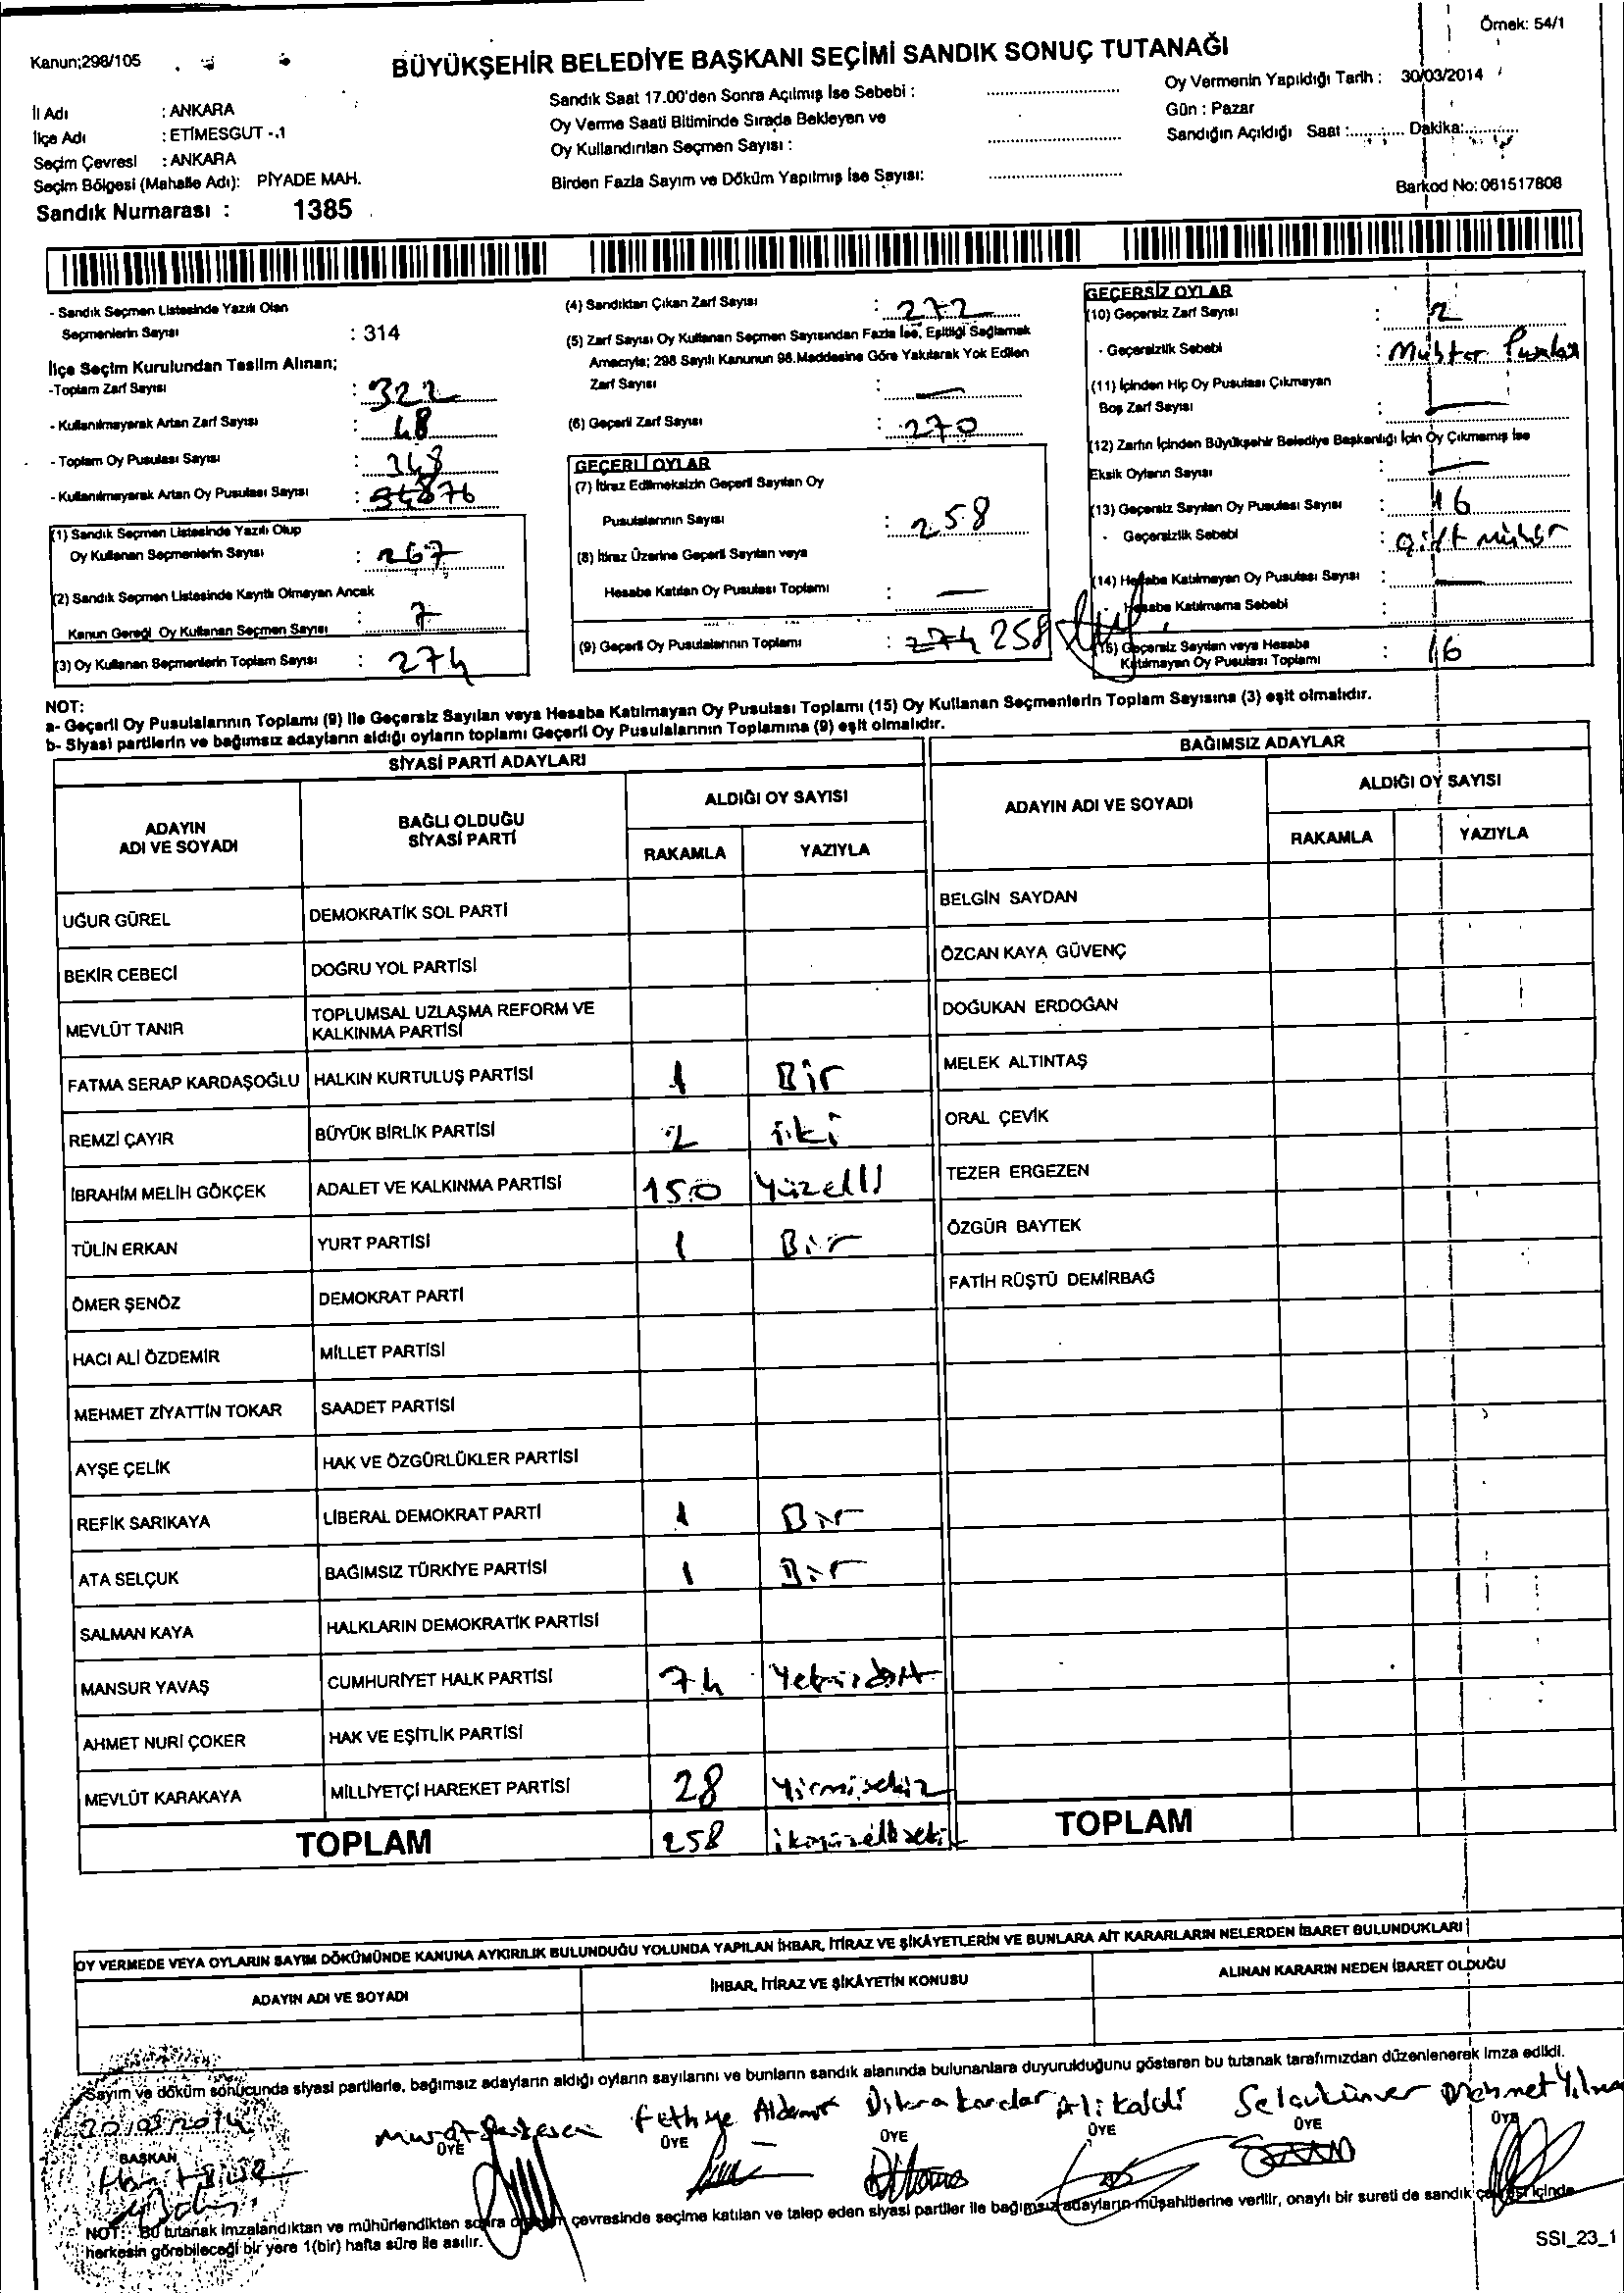 Örnek: 54/1
Kanun;298/105
BÜYÜKŞEHİR BELEDİYE BAŞKANI SEÇİMİ SANDIK SONUÇ TUTANAĞI
İl Adı : ANKARA
İlçe Adı : ETİMESGUT -.1
Seçim Çevresi : ANKARA
Seçim Bölgesi (Mahalle Adı): PİYADE MAH.
Sandık Numarası : 1385
Sandık Saat 17.00'den Sonra Açılmış İse Sebebi :
Oy Verme Saati Bitiminde Sırada Bekleyen ve
Oy Kullandırılan Seçmen Sayısı :
Birden Fazla Sayım ve Döküm Yapılmış İse Sayısı:
Oy Vermenin Yapıldığı Tarih : 30/03/2014
Gün : Pazar
Sandığın Açıldığı Saat : Dakika:
Barkod No: 061517808
- Sandık Seçmen Listesinde Yazılı Olan
Seçmenlerin Sayısı : 314
İlçe Seçim Kurulundan Teslim Alınan;
-Toplam Zarf Sayısı : 322
- Kullanılmayarak Artan Zarf Sayısı : 48
- Toplam Oy Pusulası Sayısı : 348
- Kullanılmayarak Artan Oy Pusulası Sayısı : 76
(1) Sandık Seçmen Listesinde Yazılı Olup
Oy Kullanan Seçmenlerin Sayısı : 267
(2) Sandık Seçmen Listesinde Kayıtlı Olmayan Ancak
Kanun Gereği Oy Kullanan Seçmen Sayısı : 7
(3) Oy Kullanan Seçmenlerin Toplam Sayısı : 274
(4) Sandıktan Çıkan Zarf Sayısı : 272
(5) Zarf Sayısı Oy Kullanan Seçmen Sayısından Fazla İse, Eşitliği Sağlamak
Amacıyla; 298 Sayılı Kanunun 98.Maddesine Göre Yakılarak Yok Edilen
Zarf Sayısı : —
(6) Geçerli Zarf Sayısı : 270
GEÇERLİ OYLAR
(7) İtiraz Edilmeksizin Geçerli Sayılan Oy
Pusulalarının Sayısı : 258
(8) İtiraz Üzerine Geçerli Sayılan veya
Hesaba Katılan Oy Pusulası Toplamı : —
(9) Geçerli Oy Pusulalarının Toplamı : 274 258
GEÇERSİZ OYLAR
(10) Geçersiz Zarf Sayısı : 2
- Geçersizlik Sebebi : Muhtar
(11) İçinden Hiç Oy Pusulası Çıkmayan
Boş Zarf Sayısı : —
(12) Zarfın İçinden Büyükşehir Belediye Başkanlığı İçin Oy Çıkmamış İse
Eksik Oyların Sayısı : —
(13) Geçersiz Sayılan Oy Pusulası Sayısı : 16
- Geçersizlik Sebebi : Çift mühür
(14) Hesaba Katılmayan Oy Pusulası Sayısı : —
- Hesaba Katılmama Sebebi :
(15) Geçersiz Sayılan veya Hesaba
Katılmayan Oy Pusulası Toplamı : 16
NOT:
a- Geçerli Oy Pusulalarının Toplamı (9) ile Geçersiz Sayılan veya Hesaba Katılmayan Oy Pusulası Toplamı (15) Oy Kullanan Seçmenlerin Toplam Sayısına (3) eşit olmalıdır.
b- Siyasi partilerin ve bağımsız adayların aldığı oyların toplamı Geçerli Oy Pusulalarının Toplamına (9) eşit olmalıdır.
SİYASİ PARTİ ADAYLARI
ADAYIN ADI VE SOYADI
BAĞLI OLDUĞU SİYASİ PARTİ
ALDIĞI OY SAYISI
RAKAMLA YAZIYLA
UĞUR GÜREL DEMOKRATİK SOL PARTİ
BEKİR CEBECİ DOĞRU YOL PARTİSİ
MEVLÜT TANIR TOPLUMSAL UZLAŞMA REFORM VE KALKINMA PARTİSİ
FATMA SERAP KARDAŞOĞLU HALKIN KURTULUŞ PARTİSİ 1 Bir
REMZİ ÇAYIR BÜYÜK BİRLİK PARTİSİ 2 iki
İBRAHİM MELİH GÖKÇEK ADALET VE KALKINMA PARTİSİ 150 Yüzelli
TÜLİN ERKAN YURT PARTİSİ 1 Bir
ÖMER ŞENÖZ DEMOKRAT PARTİ
HACI ALİ ÖZDEMİR MİLLET PARTİSİ
MEHMET ZİYATTİN TOKAR SAADET PARTİSİ
AYŞE ÇELİK HAK VE ÖZGÜRLÜKLER PARTİSİ
REFİK SARIKAYA LİBERAL DEMOKRAT PARTİ 1 Bir
ATA SELÇUK BAĞIMSIZ TÜRKİYE PARTİSİ 1 Bir
SALMAN KAYA HALKLARIN DEMOKRATİK PARTİSİ
MANSUR YAVAŞ CUMHURİYET HALK PARTİSİ 74 Yetmişdört
AHMET NURİ ÇOKER HAK VE EŞİTLİK PARTİSİ
MEVLÜT KARAKAYA MİLLİYETÇİ HAREKET PARTİSİ 28 Yirmisekiz
TOPLAM 258 ikiyüzellisekiz
BAĞIMSIZ ADAYLAR
ADAYIN ADI VE SOYADI
ALDIĞI OY SAYISI
RAKAMLA YAZIYLA
BELGİN SAYDAN
ÖZCAN KAYA GÜVENÇ
DOĞUKAN ERDOĞAN
MELEK ALTINTAŞ
ORAL ÇEVİK
TEZER ERGEZEN
ÖZGÜR BAYTEK
FATİH RÜŞTÜ DEMİRBAĞ
TOPLAM
OY VERMEDE VEYA OYLARIN SAYIM DÖKÜMÜNDE KANUNA AYKIRILIK BULUNDUĞU YOLUNDA YAPILAN İHBAR, İTİRAZ VE ŞİKÂYETLERİN VE BUNLARA AİT KARARLARIN NELERDEN İBARET BULUNDUKLARI
ADAYIN ADI VE SOYADI
İHBAR, İTİRAZ VE ŞİKÂYETİN KONUSU
ALINAN KARARIN NEDEN İBARET OLDUĞU
Sayım ve döküm sonucunda siyasi partilerle, bağımsız adayların aldığı oyların sayılarını ve bunların sandık alanında bulunanlara duyurulduğunu gösteren bu tutanak tarafımızdan düzenlenerek imza edildi.
30/03/2014
Murat Fethiye Aldemir Dilara Ali Kaldi Mehmet
BAŞKAN ÜYE ÜYE ÜYE ÜYE ÜYE ÜYE
NOT: Bu tutanak imzalandıktan ve mühürlendikten sonra çevresinde seçime katılan ve talep eden siyasi partiler ile bağımsız adayların müşahitlerine verilir, onaylı bir sureti de sandık çevresi içinde
herkesin görebileceği bir yere 1(bir) hafta süre ile asılır.
SSI_23_1